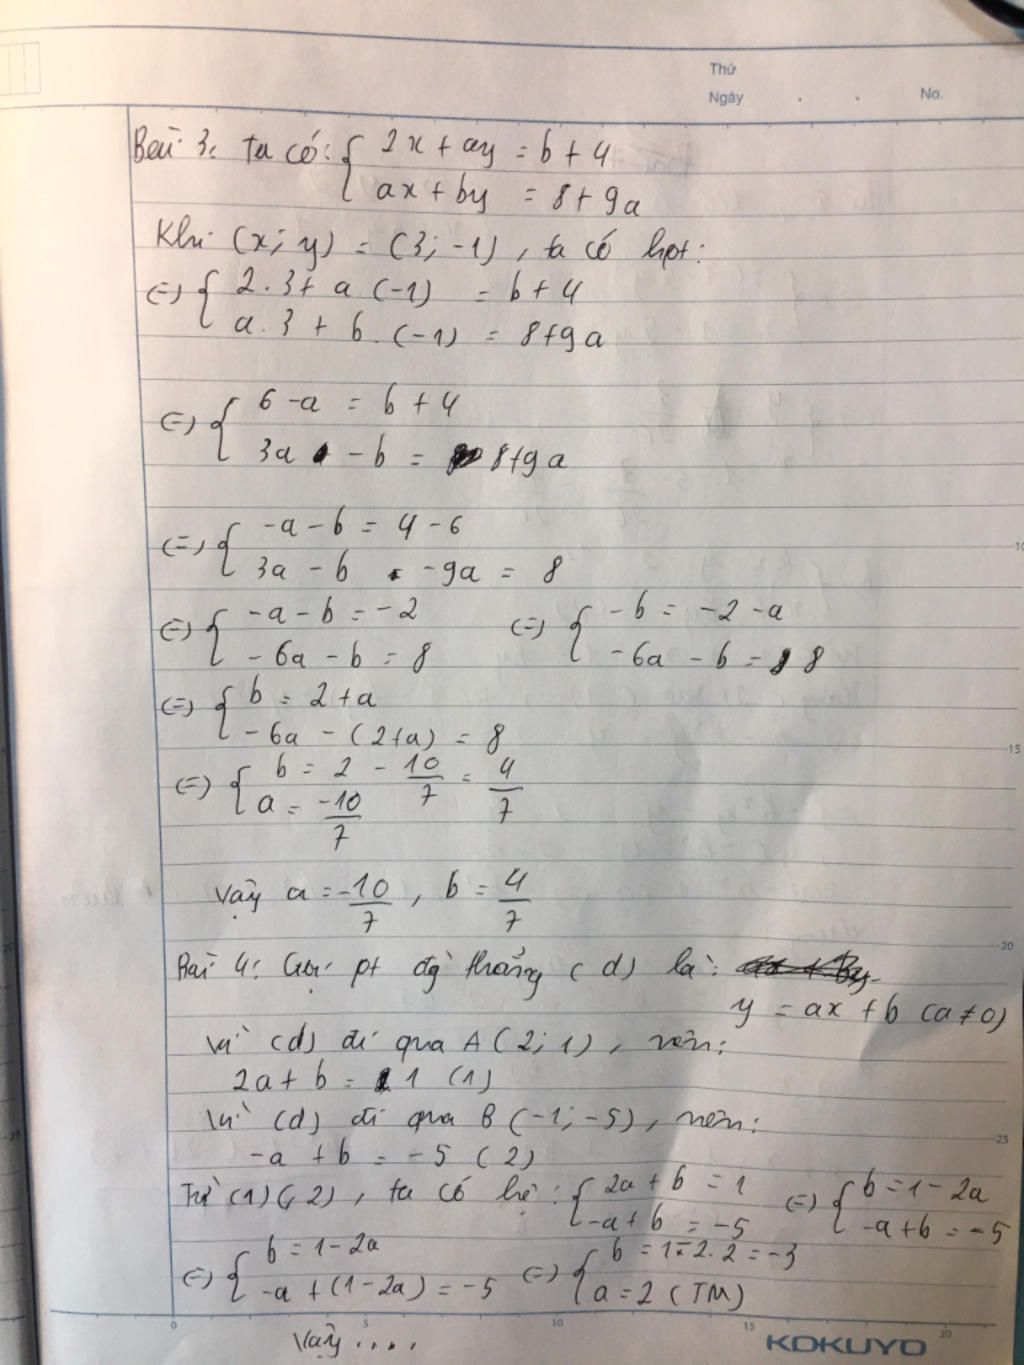 Thứ
Ngày . . No.
Bài 3: ta có: { 2x + ay = b + 4
ax + by = 8 + 9a
Khi (x; y) = (3; -1), ta có hpt:
(=) { 2.3 + a.(-1) = b + 4
a.3 + b.(-1) = 8+9a
(=) { 6 - a = b + 4
3a - b = 8+9a
(=) { -a - b = 4 - 6
3a - b - 9a = 8
(=) { -a - b = -2 (=) { -b = -2 - a
-6a - b = 8 -6a - b = 8
(=) { b = 2 + a
-6a - (2+a) = 8
(=) { b = 2 - 10/7 = 4/7
a = -10/7
Vậy a = -10/7, b = 4/7
Bài 4: Gọi pt đg thẳng (d) là:
y = ax + b (a ≠ 0)
Vì (d) đi qua A(2; 1), nên:
2a + b = 1 (1)
Vì (d) đi qua B(-1; -5), nên:
-a + b = -5 (2)
Từ (1)(,2), ta có hệ: { 2a + b = 1 (=) { b = 1 - 2a
-a + b = -5 -a + b = -5
(=) { b = 1 - 2a (=) { b = 1 - 2.2 = -3
-a + (1 - 2a) = -5 a = 2 (TM)
Vậy ....
KOKUYO
0 5 10 15 20
10
15
20
25